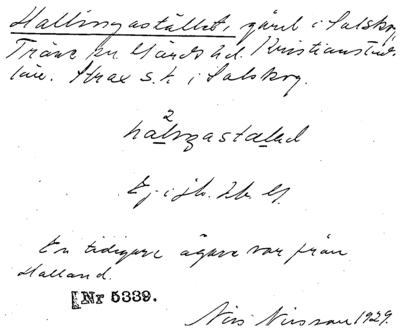 Hallingastället, gård i Salskog,
Träne sn. Gärds hd. Kristianstads
län. Strax s.h. i Salskog.
2
halingastaled
Ej i jb. Zb. G.
En tidigare ägare var från
Halland.
[Nr 5339.
Nils Nilsson 1929.